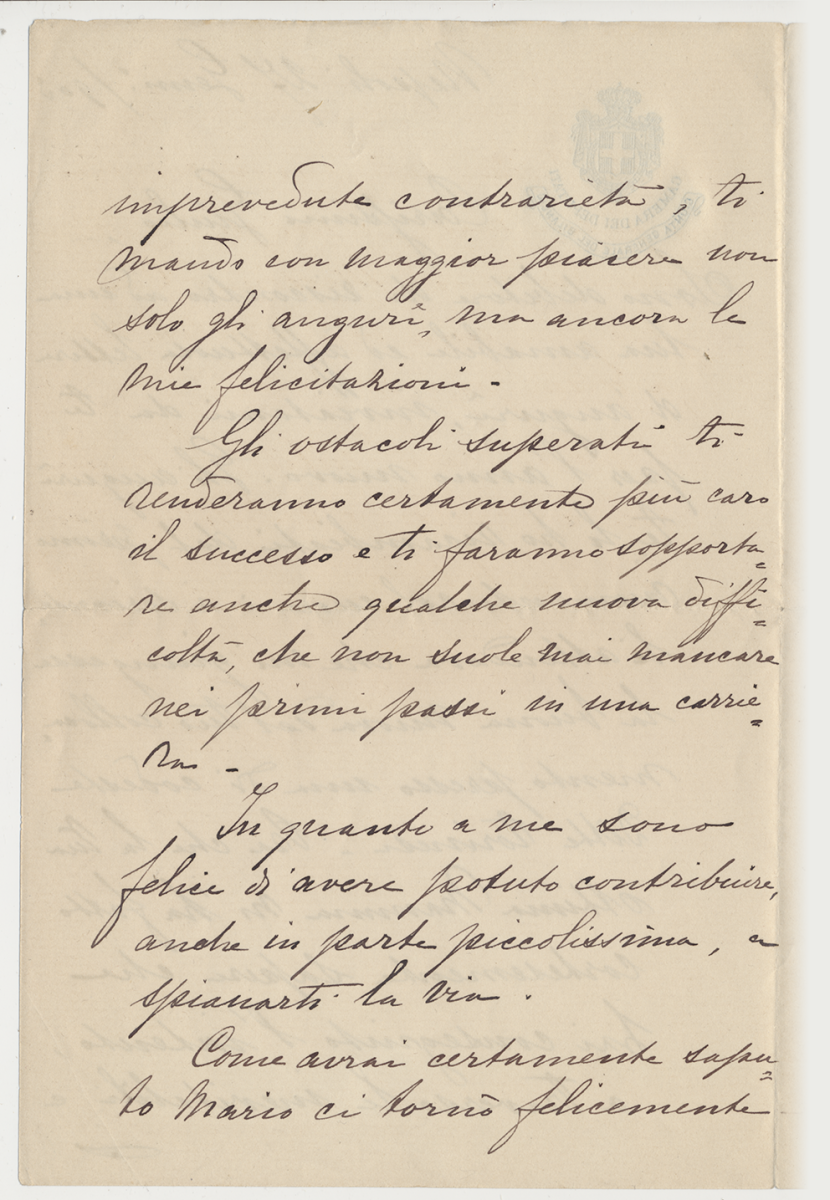 imprevedute contrarietà, ti
mando con maggior piacere non
solo gli augurî, ma ancora le
mie felicitazioni -
Gli ostacoli superati ti
renderanno certamente più caro
il successo e ti faranno sopporta=
re anche qualche nuova diffi=
coltà, che non suole mai mancare
nei primi passi in una carrie=
ra -
In quanto a me sono
felice di avere potuto contribuire,
anche in parte piccolissima, a
spianarti la via.
Come avrai certamente sapu=
to Mario ci tornò felicemente